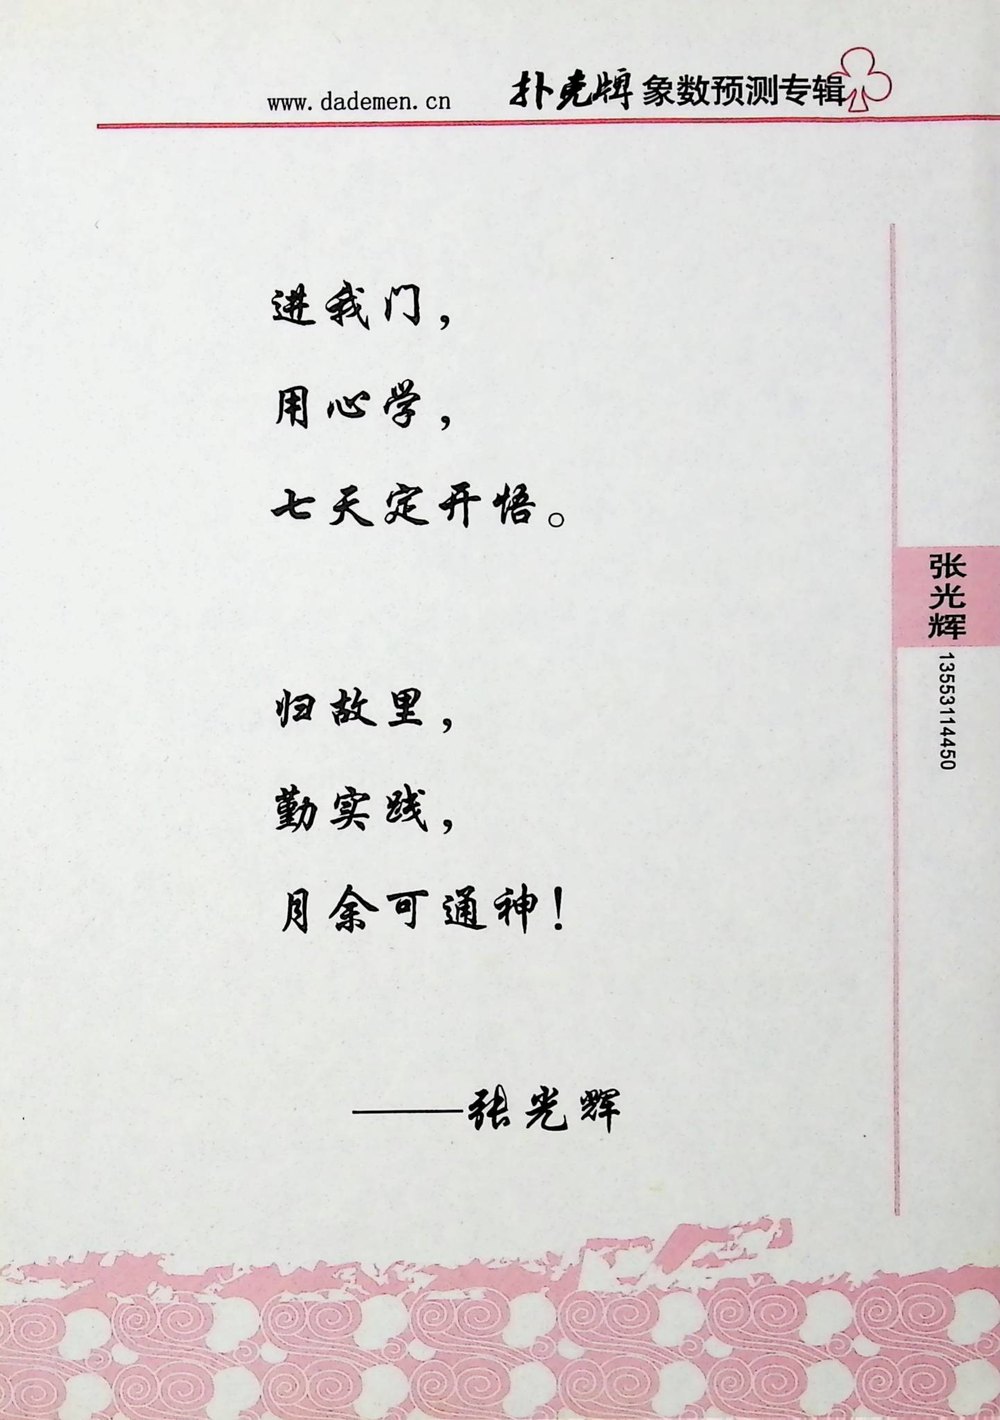 www.dademen.cn 扑克牌象数预测专辑
进我门，
用心学，
七天定开悟。
归故里，
勤实践，
月余可通神！
——张光辉
张光辉
13553114450